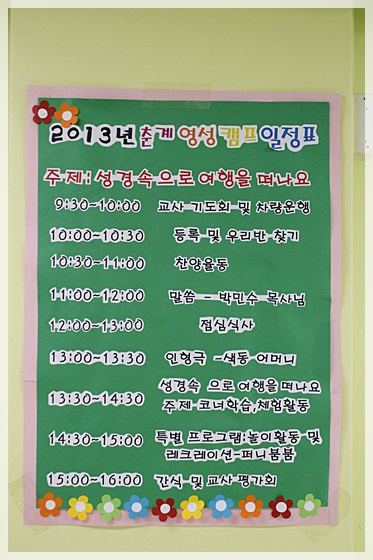 2013년 춘계 영성 캠프 일정표
주제: 성경속으로 여행을 떠나요
9:30~10:00 교사 기도회 및 차량운행
10:00~10:30 등록 및 우리반 찾기
10:30~11:00 찬양율동
11:00~12:00 말씀 - 박민수 목사님
12:00~13:00 점심식사
13:00~13:30 인형극 -색동 어머니
성경속 으로 여행을떠나요
13:30~14:30 주제 코너학습,체험활동
14:30~15:00 특별 프로그램:놀이활동 및
레크레이션-퍼니붐붐
15:00~16:00 간식 및교사 평가회